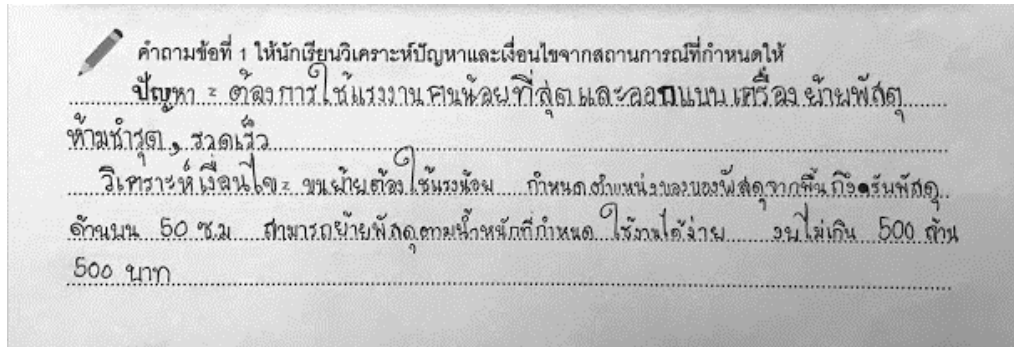 คำถามข้อที่ 1 ให้นักเรียนวิเคราะห์ปัญหาและเงื่อนไขจากสถานการณ์ที่กำหนดให้
ปัญหา = ต้องการใช้แรงงานคนน้อยที่สุดและออกแบบเครื่องย้ายพัสดุ
ห้ามชำรุด, รวดเร็ว
วิเคราะห์เงื่อนไข = ขนย้ายต้องใช้แรงน้อย กำหนดตำแหน่งของของพัสดุจากพื้นถึงรับพัสดุ
ด้านบน 50 ซ.ม สามารถย้ายพัสดุตามน้ำหนักที่กำหนด ใช้งานได้ง่าย งบไม่เกิน 500 ล้าน
500 บาท